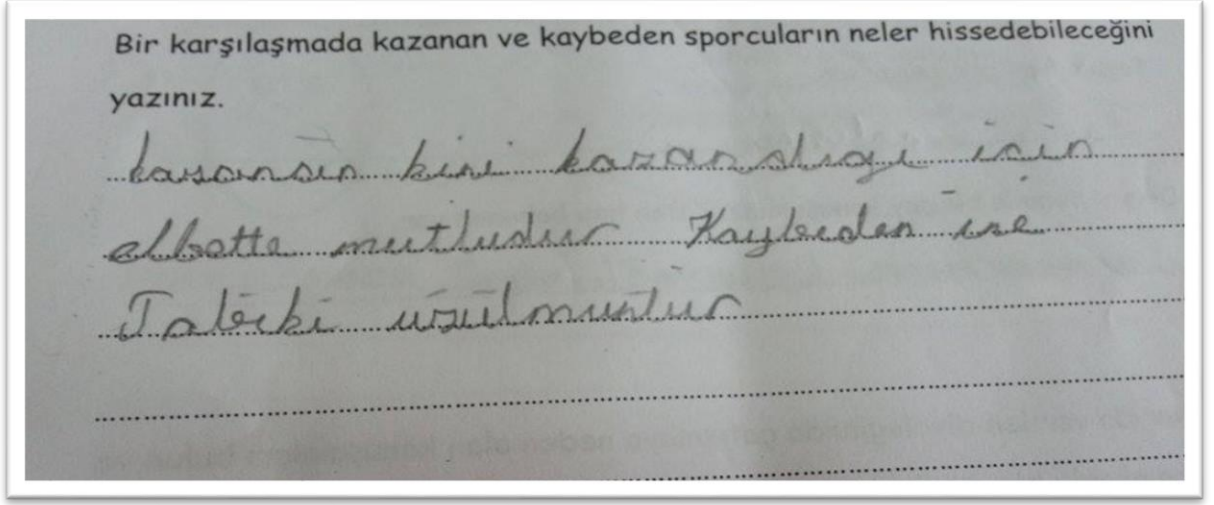 Bir karşılaşmada kazanan ve kaybeden sporcuların neler hissedebileceğini
yazınız.
kazanan biri kazandığı için
elbette mutludur Kaybeden ise
Tabiki üzülmüştür